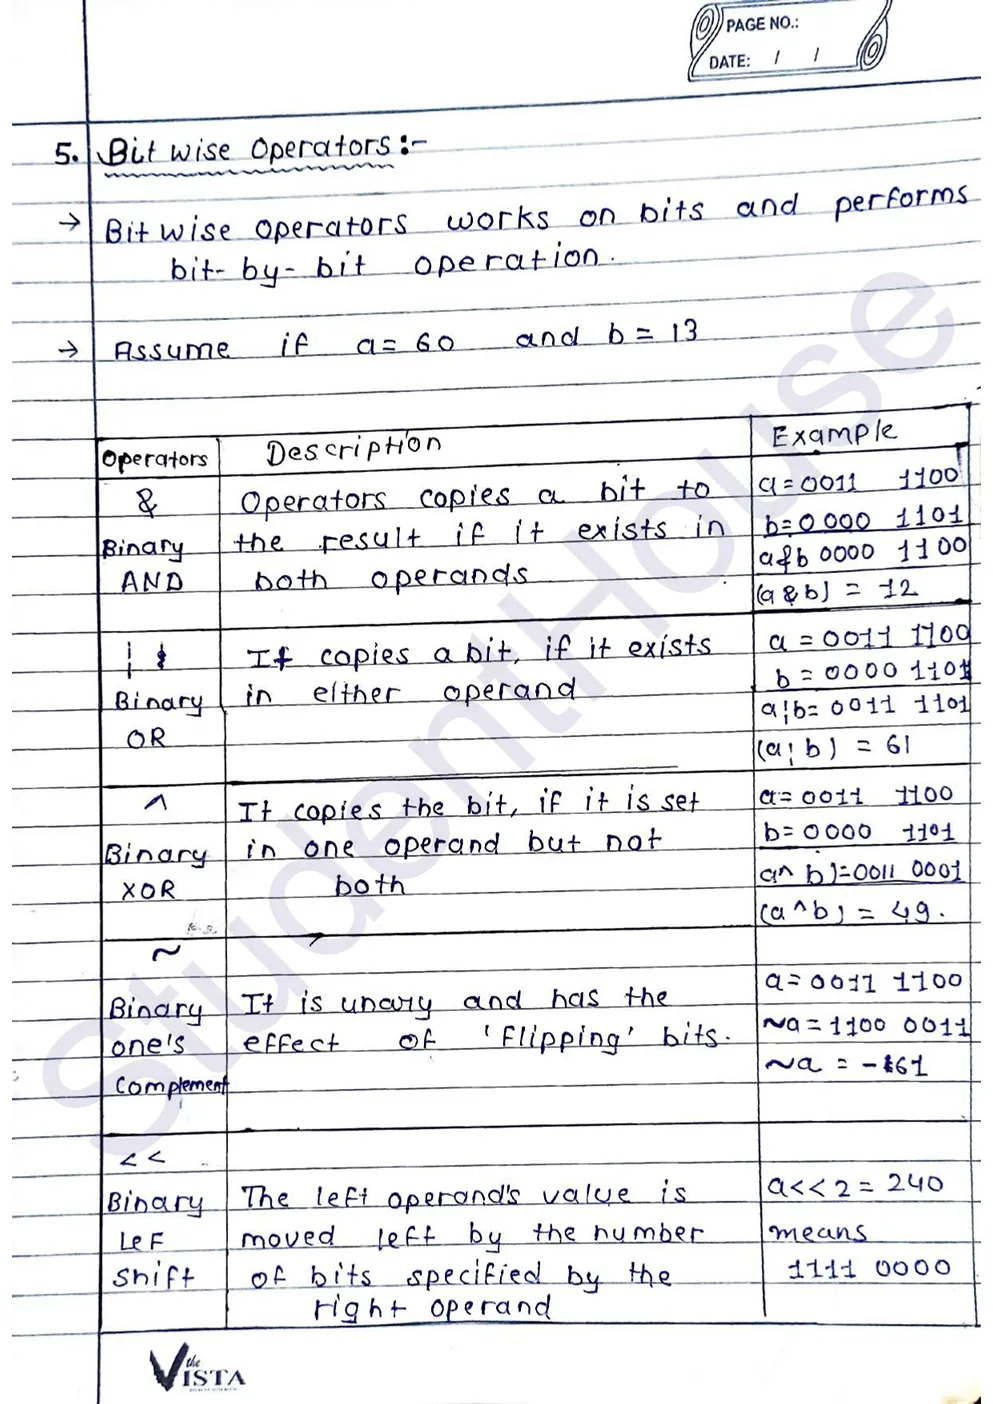 PAGE NO.:
DATE: / /
5. Bit wise Operators :-
→ Bitwise operators works on bits and performs
bit-by-bit operation.
→ Assume if a= 60 and b = 13
Operators Description Example
&
Binary
AND
Operators copies a bit to
the result if it exists in
both operands
a=0011 1100
b=0000 1101
a&b 0000 1100
(a & b) = 12
¦
Binary
OR
It copies a bit, if it exists
in either operand
a = 0011 1100
b = 0000 1101
a¦b= 0011 1101
(a¦b) = 61
^
Binary
XOR
It copies the bit, if it is set
in one operand but not
both
a= 0011 1100
b= 0000 1101
a^ b)=0011 0001
(a^b) = 49.
~
Binary
one's
complement
It is unary and has the
effect of 'flipping' bits.
a= 0011 1100
~a = 1100 0011
~a = -61
<<
Binary
Lef
shift
The left operand's value is
moved left by the number
of bits specified by the
right operand
a<<2 = 240
means
1111 0000
StudentHouse
the
VISTA